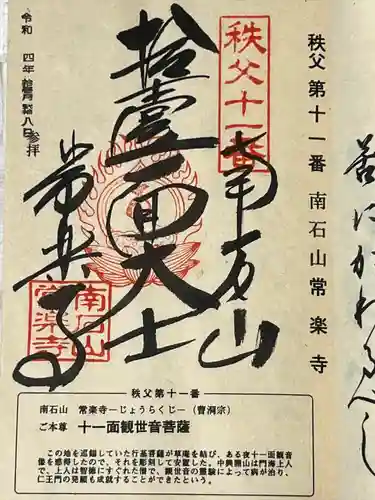 秩父第十一番 南石山常楽寺
秩父十一番
南石山
拾壹面大士
常楽寺
南石山
常楽寺
令和 四年 拾月 八日 参拝
秩父第十一番
南石山 常楽寺ーじょうらくじー(曹洞宗)
ご本尊 十一面観世音菩薩
この地を巡錫していた行基菩薩が草庵を結び、ある夜十一面観音
像を感得したので、それを彫刻して安置した。中興開山は門海上人
で、上人は智徳にすぐれた僧で、観世音の霊験によって病が治り、
仁王門の発願も成就することができたという。